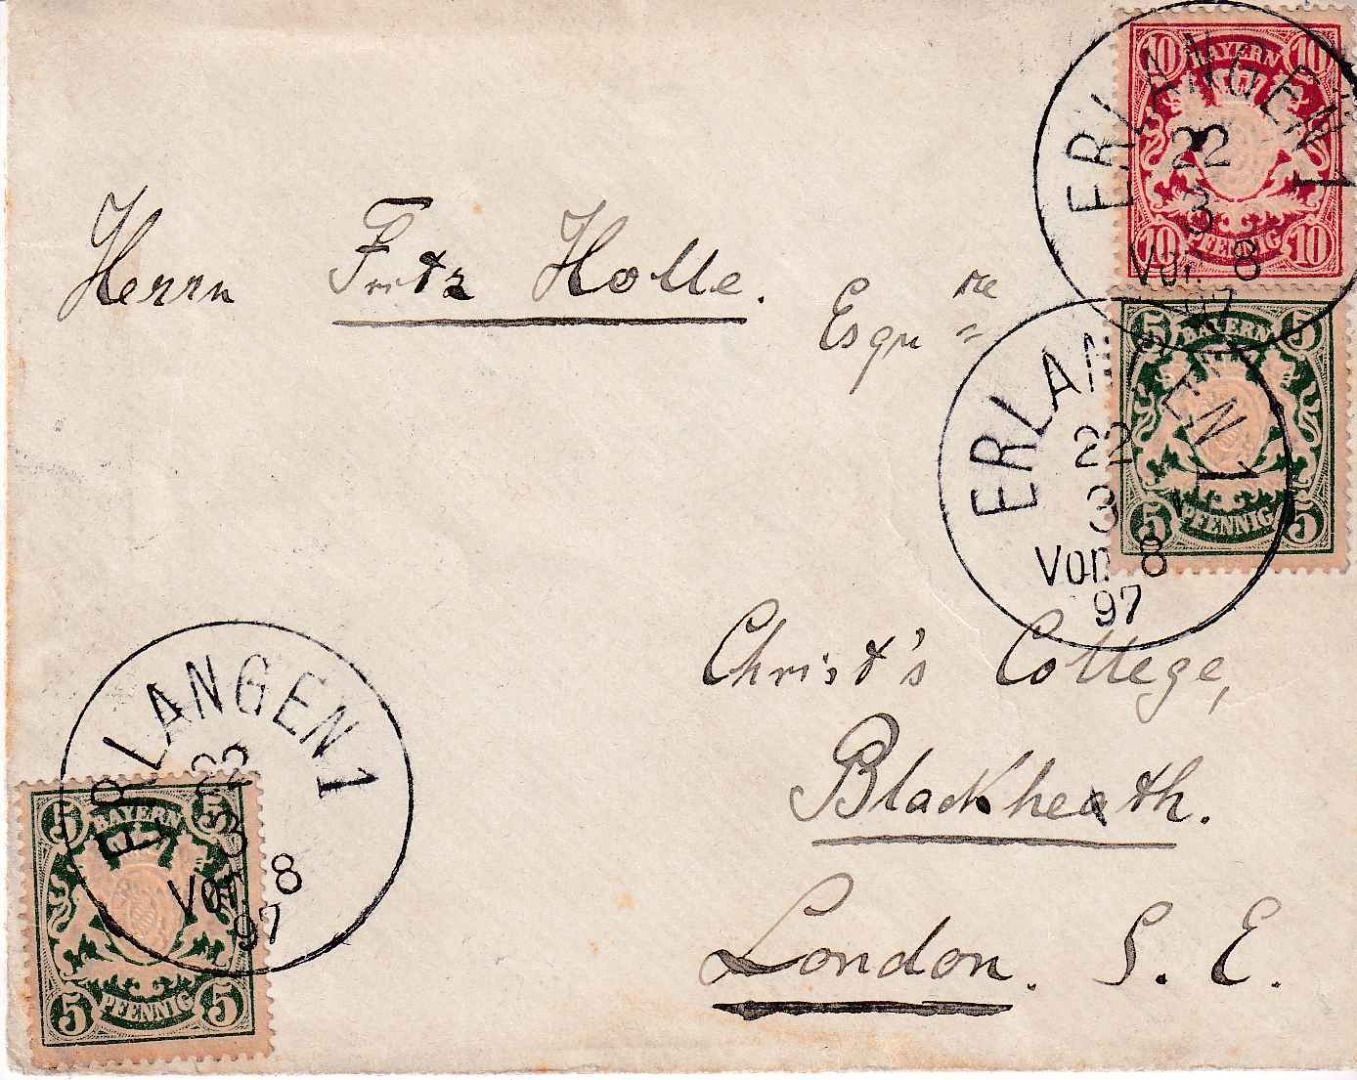 10 10
BAYERN
PFENNIG
10 10
ERLANGEN 1
22
3
Vor. 8
97
Herrn Fritz Holle.
Esqu re
5 5
BAYERN
PFENNIG
5 5
ERLANGEN 1
22
3
Vor. 8
97
Christ's College,
Blackheath.
London. S. E.
ERLANGEN 1
22
3
Vor. 8
97
5 5
BAYERN
PFENNIG
5 5